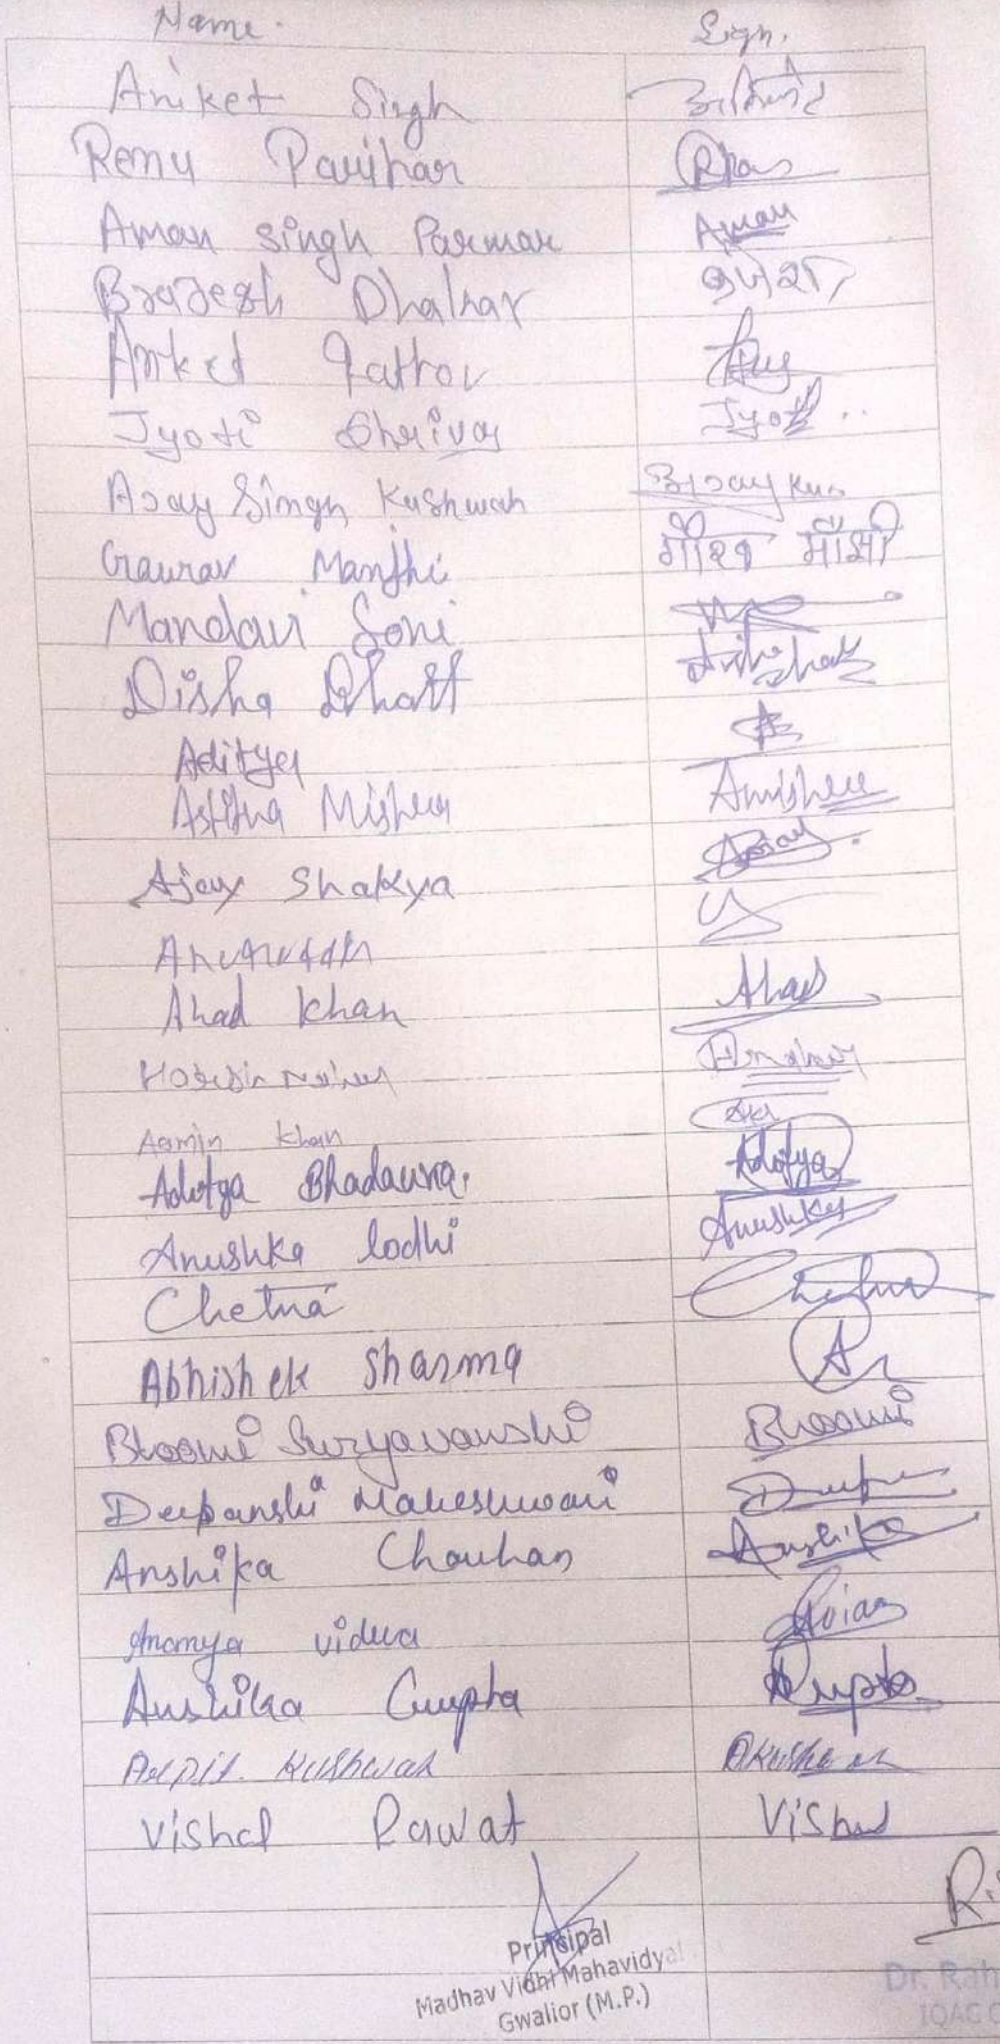 Name. Sign.
Aniket Singh
Renu Parihar
Aman Singh Parmar Aman
Brajesh Dhakar
Aniket Rathor
Jyoti Shrivas Jyoti
Ajay Singh Kushwah
Gaurav Manjhi गौरव माँझी
Mandavi Soni
Disha Bhatt
Aditya
Astha Mishra Amishra
Ajay Shakya
Anuruddh
Ahad Khan Ahad
Aamin Khan
Aditya Bhadauria. Aditya
Anushka lodhi Anushka
Chetna Chetna
Abhishek Sharma
Bhoomi Suryavanshi Bhoomi
Deepanshi Maheshwari
Anshika Chauhan Anshika
Ananya
Anshika Gupta AGupta
Arpit. Kushwah AKushwah
Vishal Rawat Vishal
Principal
Madhav Vidhi Mahavidyal
Gwalior (M.P.)
Dr. Rah
IQAC